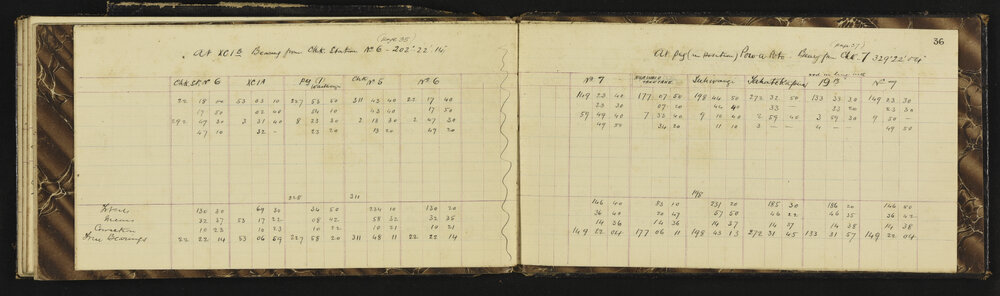 (page 35)
At XCIB Bearing from Chk. Station No 6 - 202° 22' 14"
Chk St. No 6 XCIA peg (1) Chk No 5 No 6
22 18 00 53 03 10 227 53 50 311 43 40 22 17 40
17 50 02 40 54 10 43 40 17 50
292 47 30 3 31 40 8 23 30 2 13 30 2 47 30
47 10 32 - 23 20 13 20 49 20
228 311
Totals 130 30 69 30 34 50 234 10 130 20
Means 32 37 53 17 22 08 42 58 32 32 35
Correction 10 23 10 23 10 22 10 21 10 21
True Bearings 22 22 14 53 06 59 227 58 20 311 48 11 22 22 14
(page 37)
36
At peg (in position) Bearing from Chk. 7
No 7 19B No 7
149 23 40 177 07 50 198 44 50 272 32 50 133 33 30 149 23 30
23 30 07 20 44 40 33 - 33 20 23 30
59 49 40 7 33 40 9 10 40 2 59 40 3 59 30 9 50 -
49 50 34 20 11 10 3 - 4 - 49 50
198
146 40 83 10 231 20 185 30 186 20 146 50
36 40 20 47 57 50 46 22 46 35 36 42
14 36 14 36 14 37 14 37 14 38 14 38
149 22 04 177 06 11 198 43 13 272 31 45 133 31 57 149 22 04